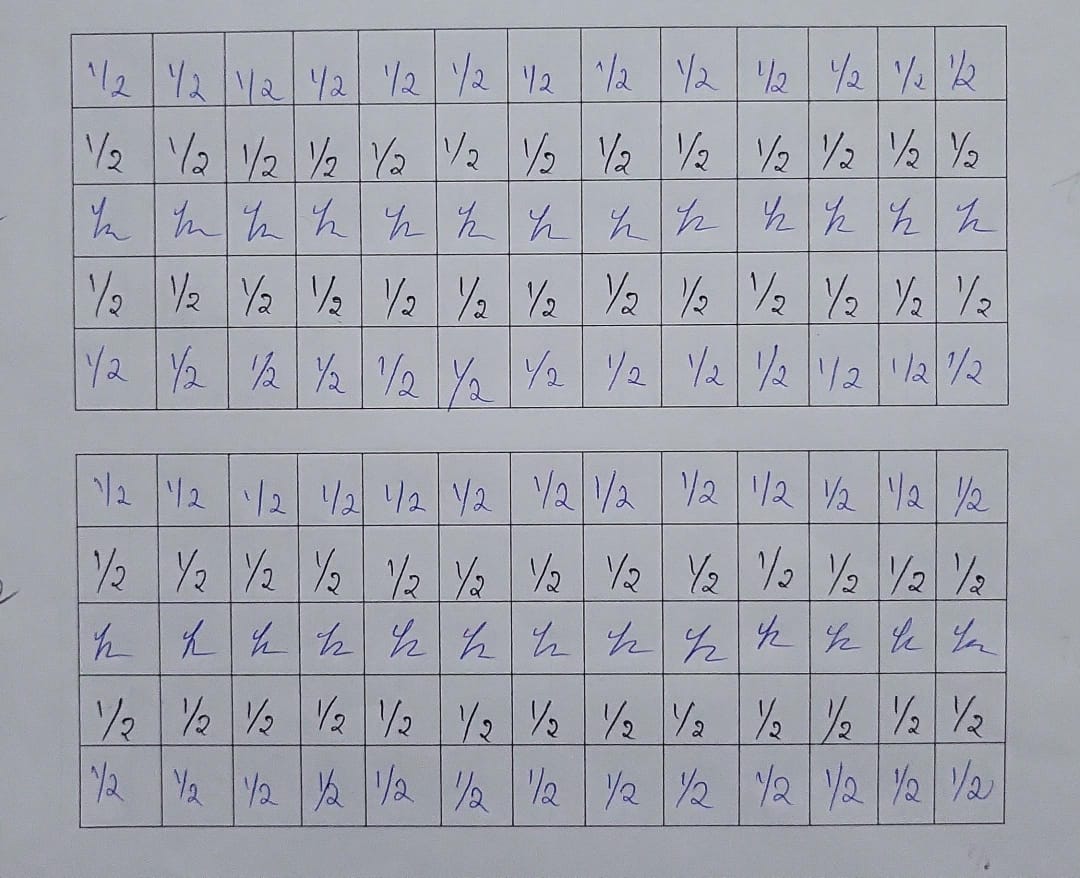 1/2 1/2 1/2 1/2 1/2 1/2 1/2 1/2 1/2 1/2 1/2 1/2 1/2
1/2 1/2 1/2 1/2 1/2 1/2 1/2 1/2 1/2 1/2 1/2 1/2 1/2
1/2 1/2 1/2 1/2 1/2 1/2 1/2 1/2 1/2 1/2 1/2 1/2 1/2
1/2 1/2 1/2 1/2 1/2 1/2 1/2 1/2 1/2 1/2 1/2 1/2 1/2
1/2 1/2 1/2 1/2 1/2 1/2 1/2 1/2 1/2 1/2 1/2 1/2 1/2
1/2 1/2 1/2 1/2 1/2 1/2 1/2 1/2 1/2 1/2 1/2 1/2 1/2
1/2 1/2 1/2 1/2 1/2 1/2 1/2 1/2 1/2 1/2 1/2 1/2 1/2
1/2 1/2 1/2 1/2 1/2 1/2 1/2 1/2 1/2 1/2 1/2 1/2 1/2
1/2 1/2 1/2 1/2 1/2 1/2 1/2 1/2 1/2 1/2 1/2 1/2 1/2
1/2 1/2 1/2 1/2 1/2 1/2 1/2 1/2 1/2 1/2 1/2 1/2 1/2